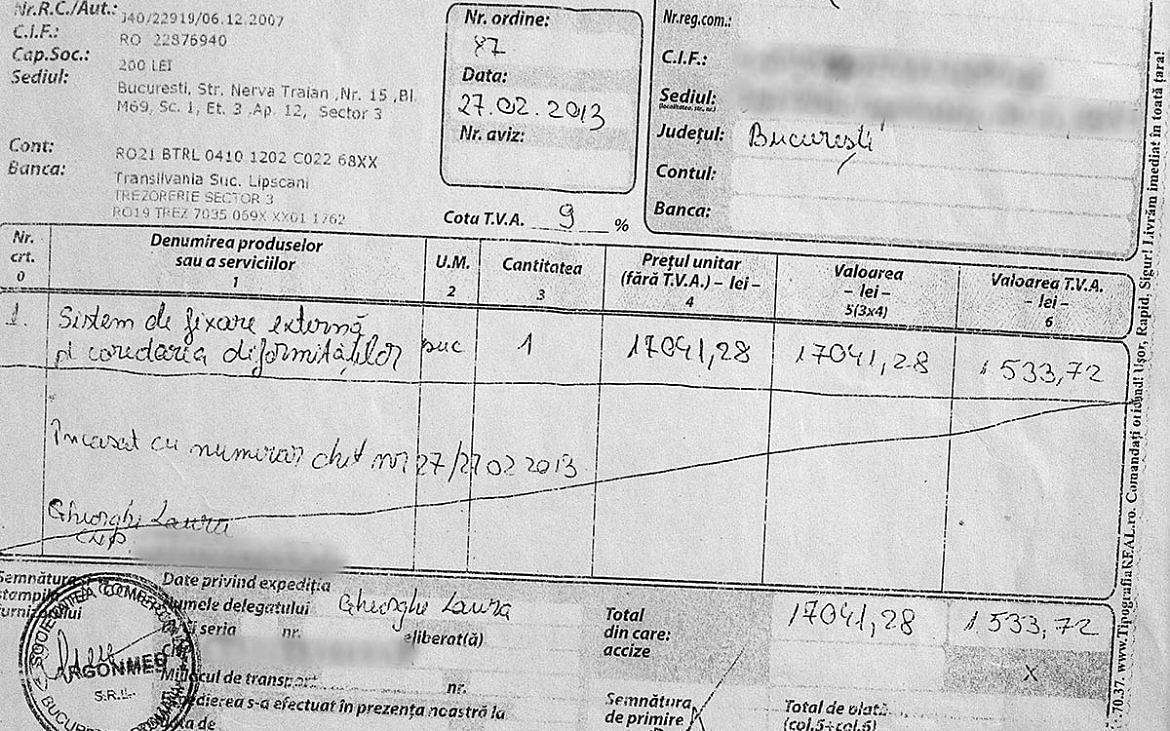 Nr.R.C./Aut.: J40/22919/06.12.2007
C.I.F.: RO 22876940
Cap.Soc.: 200 LEI
Sediul: Bucuresti, Str. Nerva Traian ,Nr. 15 ,Bl.
M69, Sc. 1, Et. 3 .Ap. 12, Sector 3
Cont: RO21 BTRL 0410 1202 C022 68XX
Banca: Transilvania Suc. Lipscani
TREZORERIE SECTOR 3
RO19 TREZ 7035 069X XX01 1762
Nr. ordine:
87
Data:
27.02.2013
Nr. aviz:
Cota T.V.A. 9 %
Nr.reg.com.:
C.I.F.:
Sediul:
(localitatea, str., nr.)
Județul: București
Contul:
Banca:
Nr. crt. Denumirea produselor sau a serviciilor U.M. Cantitatea Prețul unitar (fără T.V.A.) – lei – Valoarea – lei – Valoarea T.V.A. – lei –
0 1 2 3 4 5(3x4) 6
1. Sistem de fixare externă buc 1 17041,28 17041,28 1533,72
pt coredarea diformităților
Încasat cu numerar chit nr 27/27 02 2013
Gheorghe Laura
CNP
Semnătura și
stampila
furnizorului
SOCIETATEA COMERCIALĂ
ARGONMED
S.R.L.
BUCUREȘTI
Date privind expediția
Numele delegatului Gheorghe Laura
seria nr. eliberat(ă)
Mijlocul de transport nr.
Expedierea s-a efectuat în prezența noastră la
data de
Total 17041,28 1533,72
din care:
accize X
Semnătura
de primire
Total de plată
(col.5+col.6)
70.37. www.TipografiaREAL.ro. Comandați oricând! Ușor, Rapid, Sigur! Livrăm imediat în toată țara!